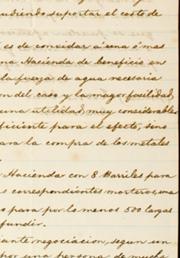 udiendo suportar el costo de
es de convidar a una ó mas
na Hacienda de beneficio en
la fuerza de agua necesaria
n del caso y la mayor facilidad,
una utilidad, muy considerables
ficiente para el efecto, sino
ara la compra de los metales
Hacienda con 8 Barriles para
s correspondientes morteros, una
o para por lo menos 500 cargas
fundir.
ante negociacion, segun un
por una persona de mucha